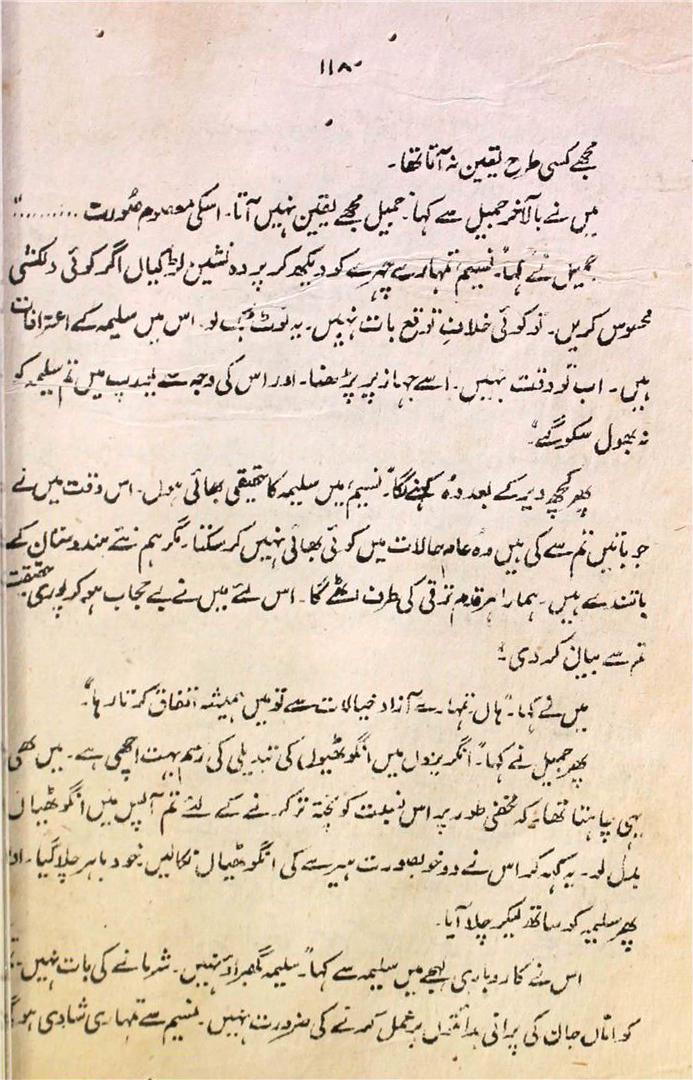 ۱۱۸
مجھے کسی طرح یقین نہ آتا تھا۔
میں نے بالآخر جمیل سے کہا۔ جمیل مجھے یقین نہیں آتا۔ اسکی معصوم صورت ..........."
جمیل نے کہا۔ "نسیم، تمہارے چہرے کو دیکھ کر پردہ نشین لڑکیاں اگر کوئی دلکشی
محسوس کریں۔ تو کوئی خلافِ توقع بات نہیں۔ یہ نوٹ بک لو۔ اس میں سلیمہ کے اعترافات
ہیں۔ اب تو وقت نہیں۔ اسے جہاز پر پڑھنا۔ اور اس کی وجہ سے یورپ میں تم سلیمہ کو
نہ بھول سکو گے"۔
پھر کچھ دیر کے بعد وہ کہنے لگا۔ "نسیم، میں سلیمہ کا حقیقی بھائی ہوں۔ اس وقت میں نے
جو باتیں تم سے کی ہیں وہ عام حالات میں کوئی بھائی نہیں کر سکتا۔ مگر ہم نئے ہندوستان کے
باشندے ہیں۔ ہمارا ہر قدم ترقی کی طرف اٹھے گا۔ اس لئے میں نے بے حجاب ہو کر پوری حقیقت
تم سے بیان کر دی"۔
میں نے کہا۔ "ہاں تمہارے آزاد خیالات سے تو میں ہمیشہ اتفاق کرتا رہا"۔
پھر جمیل نے کہا۔ "انگریزوں میں انگوٹھیوں کی تبدیلی کی رسم بہت اچھی ہے۔ میں بھی
یہی چاہتا تھا۔ کہ مخفی طور پر اس نسبت کو پختہ تر کرنے کے لئے تم آپس میں انگوٹھیاں
بدل لو۔ یہ کہہ کر اس نے دو خوبصورت ہیرے کی انگوٹھیاں نکالیں۔ خود باہر چلا گیا۔
پھر سلیمہ کو ساتھ لیکر چلا آیا۔
اس نے کاروباری لہجے میں سلیمہ سے کہا۔ "سلیمہ گھبراؤ نہیں۔ شرمانے کی بات نہیں۔
کو اماں جان کی پرانی ہدایتوں پر عمل کرنے کی ضرورت نہیں۔ نسیم سے تمہاری شادی